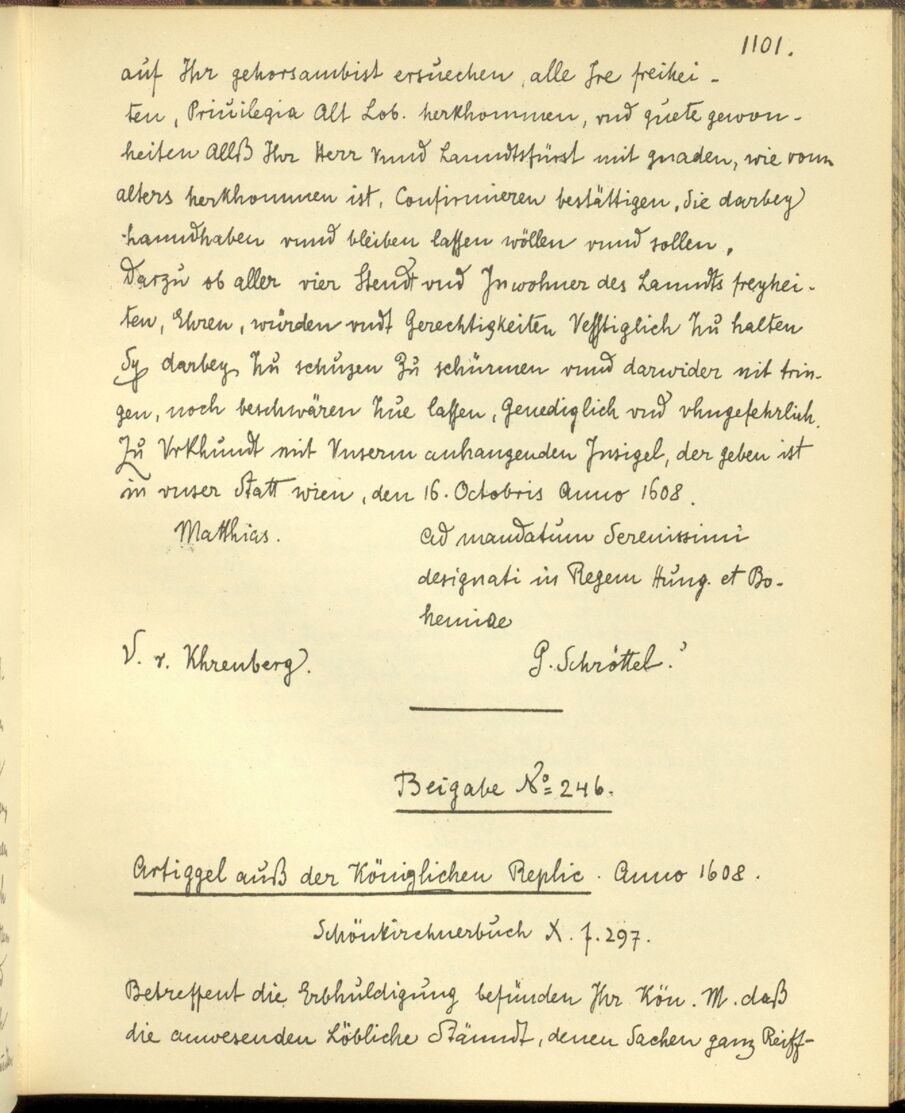 1101.
auf Ihr gehorsambist ersuechen, alle Ire freihei-
ten, Priuilegia Alt Lob. herkhommen, vnd guete gewon-
heiten Allß Ihr Herr vnnd Lanndtsfürst mit gnaden, wie vonn
alters herkhommen ist, Confirmieren bestättigen, Sie darbey
hanndhaben vnnd bleiben lassen wöllen vnnd sollen,
Darzu ob aller vier Stendt vnd Inwohner des Lanndts freyhei-
ten, Ehren, würden vndt Gerechtigkeiten Vesstiglich Zu halten
Sy darbey Zu schuzen Zu schürmen vnnd darwider nit trin-
gen, noch beschwären Zue lassen, Genediglich vnd vhngefehrlich.
Zu Vrkhundt mit Vnserm anhangenden Insigel, der geben ist
in vnser Statt wien, den 16. Octobris Anno 1608.
Matthias.
Ad mandatum Serenissimi
designati in Regem Hung. et Bo-
hemiae
V. v. Khrenberg.
P. Schröttel.
Beigabe No 246.
Artiggel auß der Königlichen Replic. Anno 1608.
Schönkirchnerbuch X. f. 297.
Betreffent die Erbhuldigung befünden Ihr Kön. M. daß
die anwesenden Löbliche Stänndt, denen Sachen ganz Reiff-